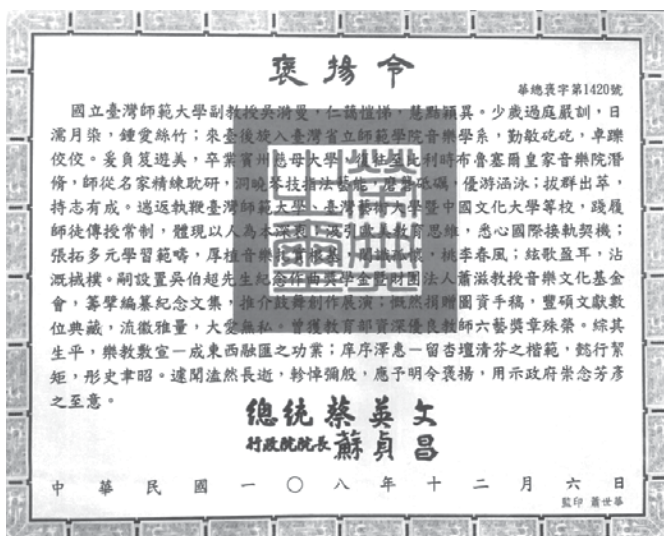 褒揚令
華總褒字第1420號
國立臺灣師範大學副教授吳漪曼，仁藹愷悌，慧黠穎異。少歲過庭嚴訓，日
濡月染，鍾愛絲竹；來臺後旋入臺灣省立師範學院音樂學系，勤敏矻矻，卓躒
佼佼。爰負笈遊美，卒業賓州慈母大學，復往至比利時布魯塞爾皇家音樂院潛
脩，師從名家精練耽研，洞曉琴技指法藝能，磨礱砥礪，優游涵泳；拔群出萃，
持志有成。遄返執鞭臺灣師範大學、臺灣藝術大學暨中國文化大學等校，踐履
師徒傳授常制，體現以人為本深衷；汲引歐美教育思維，悉心國際接軌契機；
張拓多元學習範疇，厚植音樂教育根基，閎識孤懷，桃李春風；絃歌盈耳，沾
溉棫樸。嗣設置吳伯超先生紀念作曲獎學金暨財團法人蕭滋教授音樂文化基金
會，籌擘編纂紀念文集，推介鼓舞創作展演；慨然捐贈圖資手稿，豐碩文獻數
位典藏，流徽雅量，大愛無私。曾獲教育部資深優良教師六藝獎章殊榮。綜其
生平，樂教敷宣—成東西融匯之功業；庠序澤惠—留杏壇清芬之楷範，懿行絜
矩，彤史聿昭。遽聞溘然長逝，軫悼彌殷，應予明令褒揚，用示政府崇念芳彥
之至意。
總統 蔡英文
行政院院長 蘇貞昌
中華民國一〇八年十二月六日
監印 蕭世華